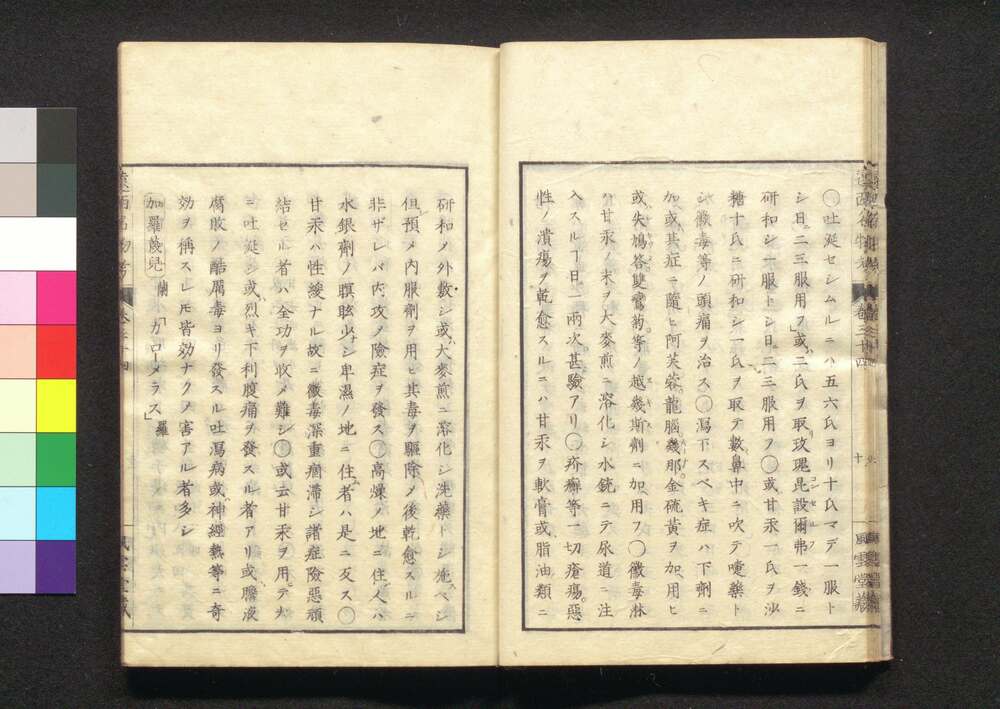 〇吐涎セシムルニハ五六氏ヨリ十氏マデ一服ト
シ日ニ二三服用フ或ハ二氏ヲ取玫瑰昆設爾弗一錢ニ
コンセルフ
研和シ一服トシ日ニ二三服用フ〇或甘汞一氏ヲ沙
糖十氏ニ研和シ一氏ヲ取テ數鼻中ニ吹テ嚏藥ト
シ黴毒等ノ頭痛ヲ治ス〇瀉下スベキ症ハ下劑ニ
加或其症ニ隨ヒ阿芙蓉龍腦幾那金硫黄ヲ加用ヒ
或失鳩答雙鸞菊等ノ越幾斯劑ニ加用フ〇黴毒淋
ハ甘汞ノ末ヲ大麥煎ニ溶化シ水銃ニテ尿道ニ注
入スルヿ日一兩次甚驗アリ〇疥癬等一切瘡瘍惡
性ノ潰瘍ヲ乾愈スルニハ甘汞ヲ軟膏或脂油類ニ
遠西名物考 卷三十四 十 風雲堂藏
研和メ外敷シ或大麥煎ニ溶化シ洗藥トシ施スベシ
但預メ内服劑ヲ用ヒ其毒ヲ驅除メ後乾愈スルニ
非ザレバ内攻ノ險症ヲ發ス〇高燥ノ地ニ住人ハ
水銀劑ノ瞑眩少シ卑濕ノ地ニ住者ハ是ニ反ス〇
甘汞ハ性緩ナル故ニ黴毒深重痼滯シ諸症險惡頑
結セル者ハ全功ヲ收メ難シ〇或云甘汞ヲ用テ大
ニ吐涎シ或烈キ下利腹痛ヲ發スル者アリ或膽液
腐敗ノ酷厲毒ヨリ發スル吐瀉病或神經熱等ニ奇
效ヲ稱スレモ皆效ナクメ害アル者多シ
加羅蔑兒 蘭「カローメラス」羅